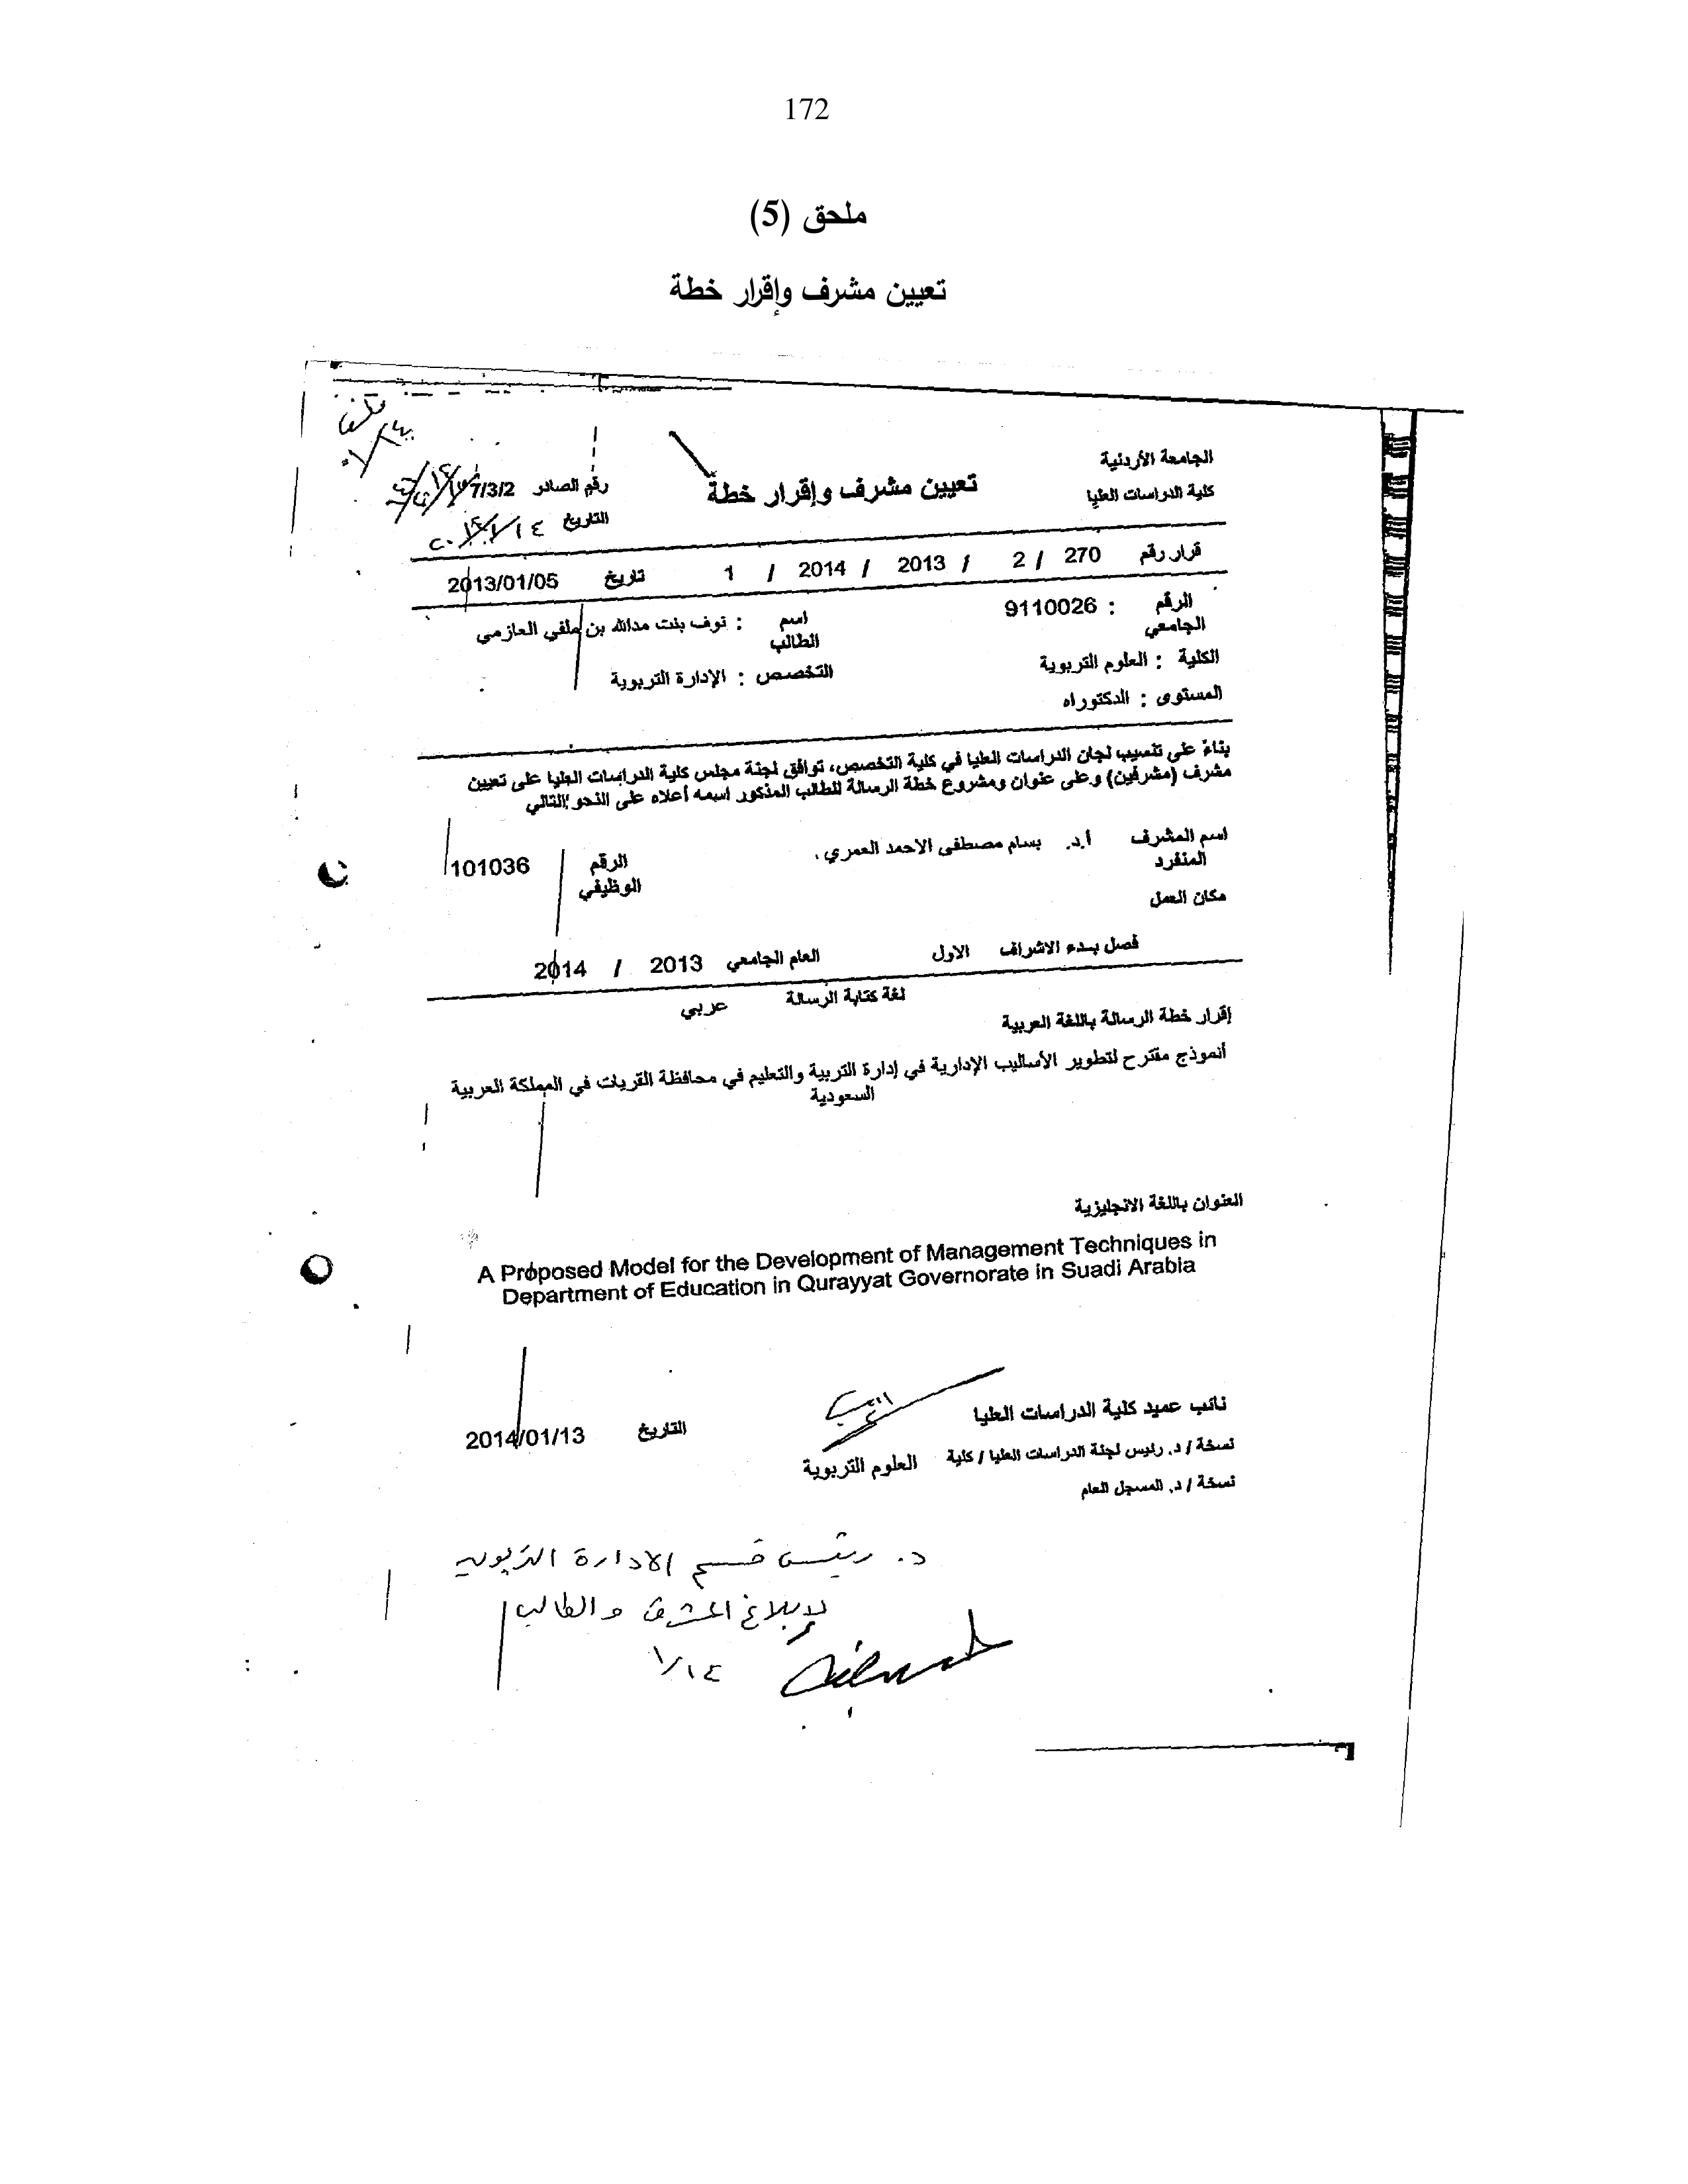 172
ملحق (5)
تعيين مشرف وإقرار خطة
الجامعة الأردنية
كلية الدراسات العليا
تعيين مشرف وإقرار خطة
رقم الصادر 7/3/2
التاريخ ١٤
قرار رقم 270 / 2 / 2013 / 2014 / 1 تاريخ 2013/01/05
الرقم الجامعي : 9110026 اسم الطالب : نوف بنت مدالله بن ملفي العازمي
الكلية : العلوم التربوية التخصص : الإدارة التربوية
المستوى : الدكتوراه
بناءً على تنسيب لجان الدراسات العليا في كلية التخصص، توافق لجنة مجلس كلية الدراسات العليا على تعيين
مشرف (مشرفين) وعلى عنوان ومشروع خطة الرسالة للطالب المذكور اسمه أعلاه على النحو التالي
اسم المشرف المنفرد أ.د. بسام مصطفى الاحمد العمري . الرقم الوظيفي 101036
مكان العمل
فصل بدء الاشراف الاول العام الجامعي 2013 / 2014
لغة كتابة الرسالة عربي
إقرار خطة الرسالة باللغة العربية
أنموذج مقترح لتطوير الأساليب الإدارية في إدارة التربية والتعليم في محافظة القريات في المملكة العربية
السعودية
العنوان باللغة الانجليزية
A Proposed Model for the Development of Management Techniques in
Department of Education in Qurayyat Governorate in Suadi Arabia
نائب عميد كلية الدراسات العليا التاريخ 2014/01/13
نسخة / د. رئيس لجنة الدراسات العليا / كلية العلوم التربوية
نسخة / د. المسجل العام
د. رئيس قسم الادارة التربوية
لإبلاغ المشرف والطالب
١/١٤